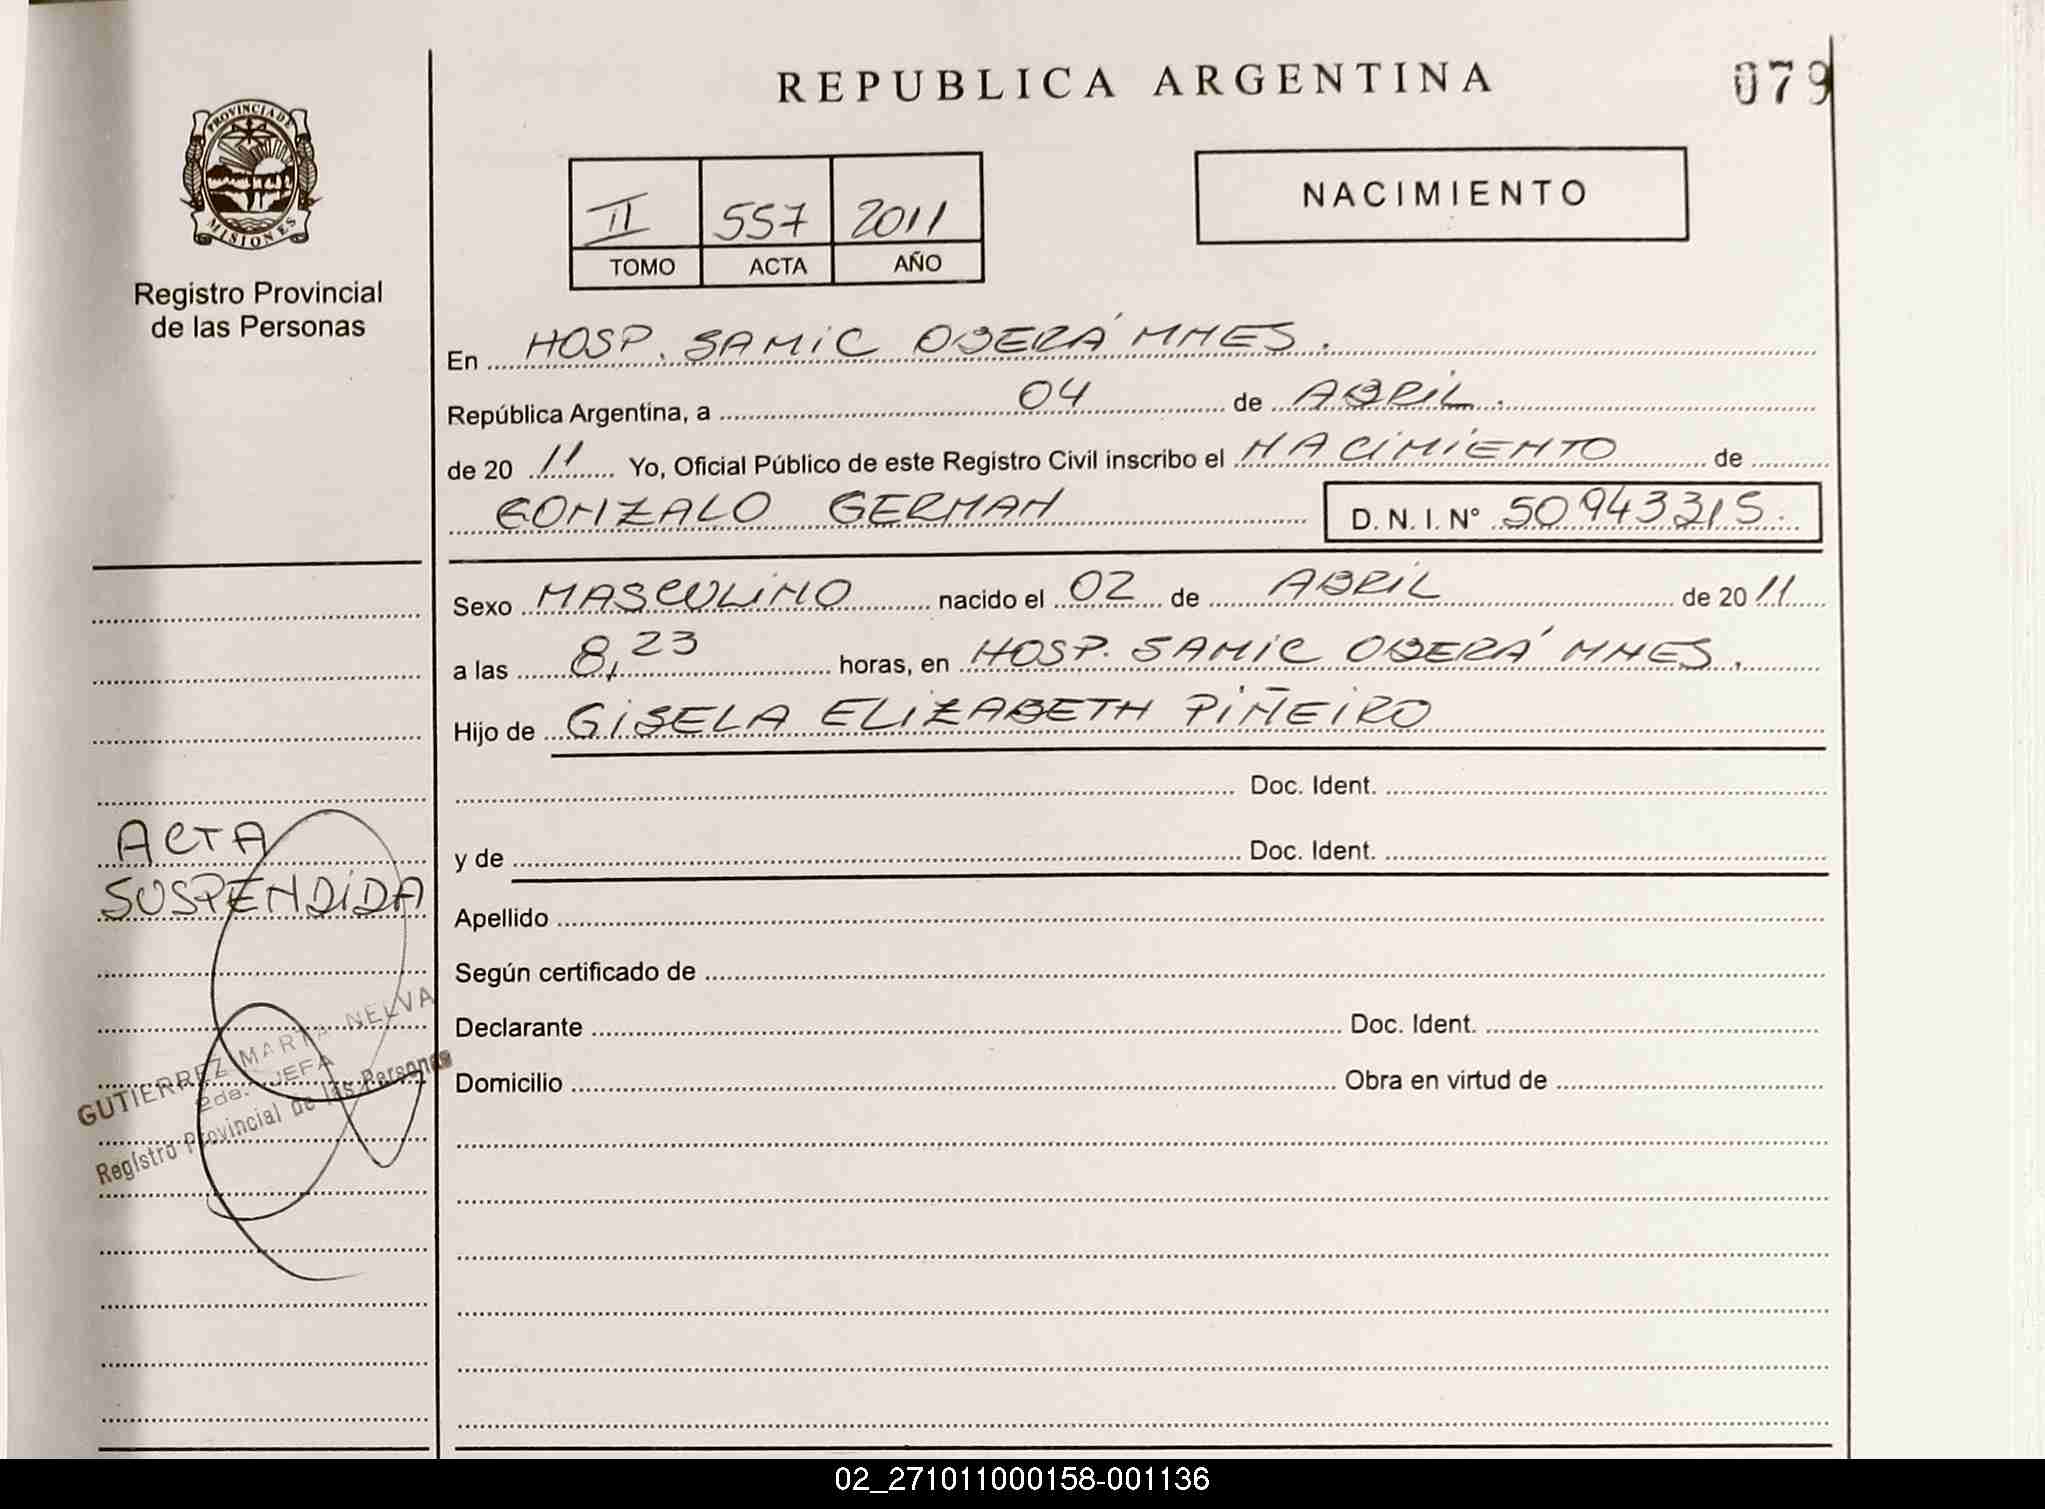 REPUBLICA ARGENTINA
079
PROVINCIA DE
MISIONES
Registro Provincial
de las Personas
II 557 2011
TOMO ACTA AÑO
NACIMIENTO
En HOSP. SAMIC OBERÁ MNES.
República Argentina, a 04 de ABRIL.
de 20 11 Yo, Oficial Público de este Registro Civil inscribo el NACIMIENTO de
GONZALO GERMAN D. N. I. N° 50943315.
Sexo MASCULINO nacido el 02 de ABRIL de 20 11
a las 8,23 horas, en HOSP. SAMIC OBERÁ MNES.
Hijo de GISELA ELIZABETH PIÑEIRO
Doc. Ident.
y de Doc. Ident.
Apellido
Según certificado de
Declarante Doc. Ident.
Domicilio Obra en virtud de
ACTA
SUSPENDIDA
GUTIERREZ MARTA NELVA
2da. JEFA
Registro Provincial de las Personas
02_271011000158-001136